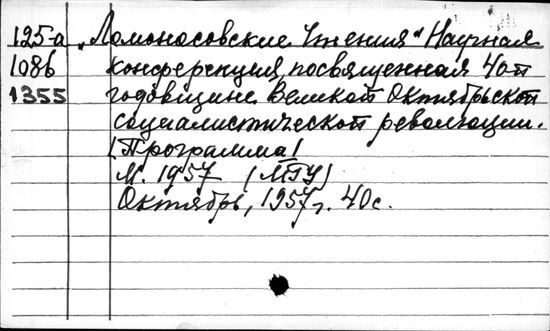 125-а „Ломоносовские чтения“ Научная
1086 конференция, посвященная 40ой
1355 годовщине Великой Октябрьской
социалистической революции.
[Программа]
М. 1957 (МГУ)
Октябрь, 1957 г. 40 с.